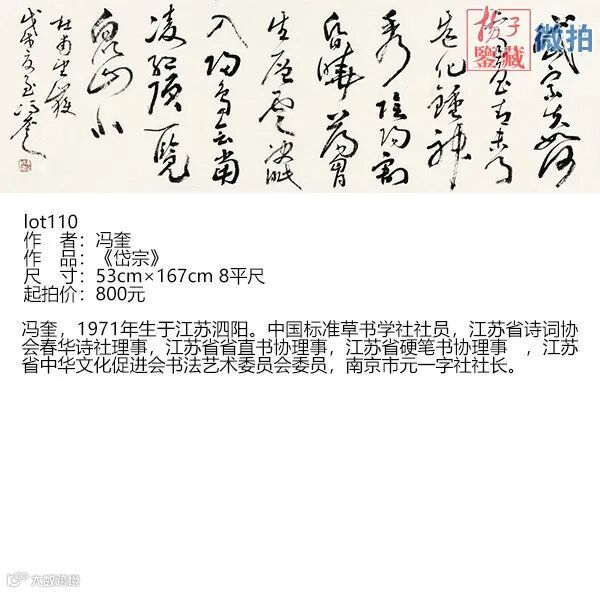 岱宗夫如何
齊魯青未了
造化鍾神
秀陰陽割
昏曉蕩胸
生層雲決眥
入歸鳥會當
凌絕頂一覽
眾山小
杜甫望嶽
子
鑒藏
微拍
lot110
作 者：冯奎
作 品：《岱宗》
尺 寸：53cm×167cm 8平尺
起拍价：800元
冯奎，1971年生于江苏泗阳。中国标准草书学社社员，江苏省诗词协
会春华诗社理事，江苏省省直书协理事，江苏省硬笔书协理事 ，江苏
省中华文化促进会书法艺术委员会委员，南京市元一字社社长。